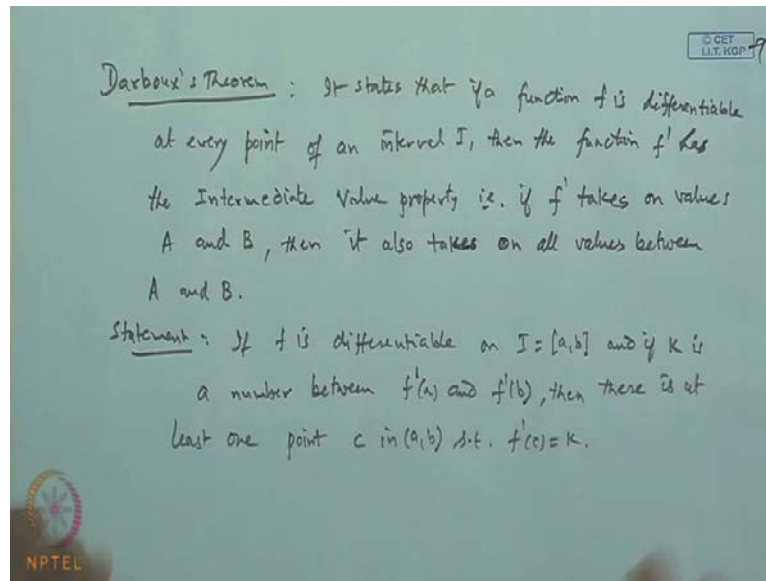 © CET
I.I.T. KGP
9
Darboux's Theorem : It states that if a function f is differentiable
at every point of an interval I, then the function f' has
the Intermediate Value property i.e. if f' takes on values
A and B, then it also takes on all values between
A and B.
Statement : If f is differentiable on I = [a,b] and if K is
a number between f'(a) and f'(b), then there is at
least one point c in (a,b) s.t. f'(c) = K.
NPTEL